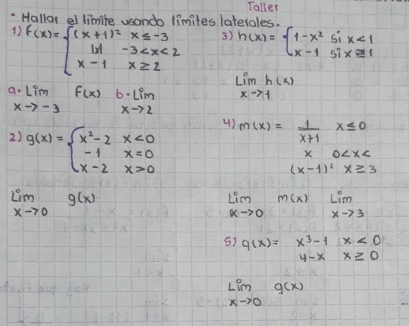 Taller
• Hallar el limite usando limites laterales.
1) f(x) = { (x+1)² x ≤ -3
|x| -3 < x < 2
x - 1 x ≥ 2
a. Lim f(x) b. Lim
x → -3 x → 2
2) g(x) = { x² - 2 x < 0
-1 x = 0
x - 2 x > 0
Lim g(x)
x → 0
3) h(x) = { 1 - x² si x < 1
x - 1 si x ≥ 1
Lim h(x)
x → 1
4) m(x) = 1/(x+1) x ≤ 0
x 0 < x <
(x-1)² x ≥ 3
Lim m(x) Lim
x → 0 x → 3
5) q(x) = x³ - 1 x < 0
4 - x x ≥ 0
Lim g(x)
x → 0